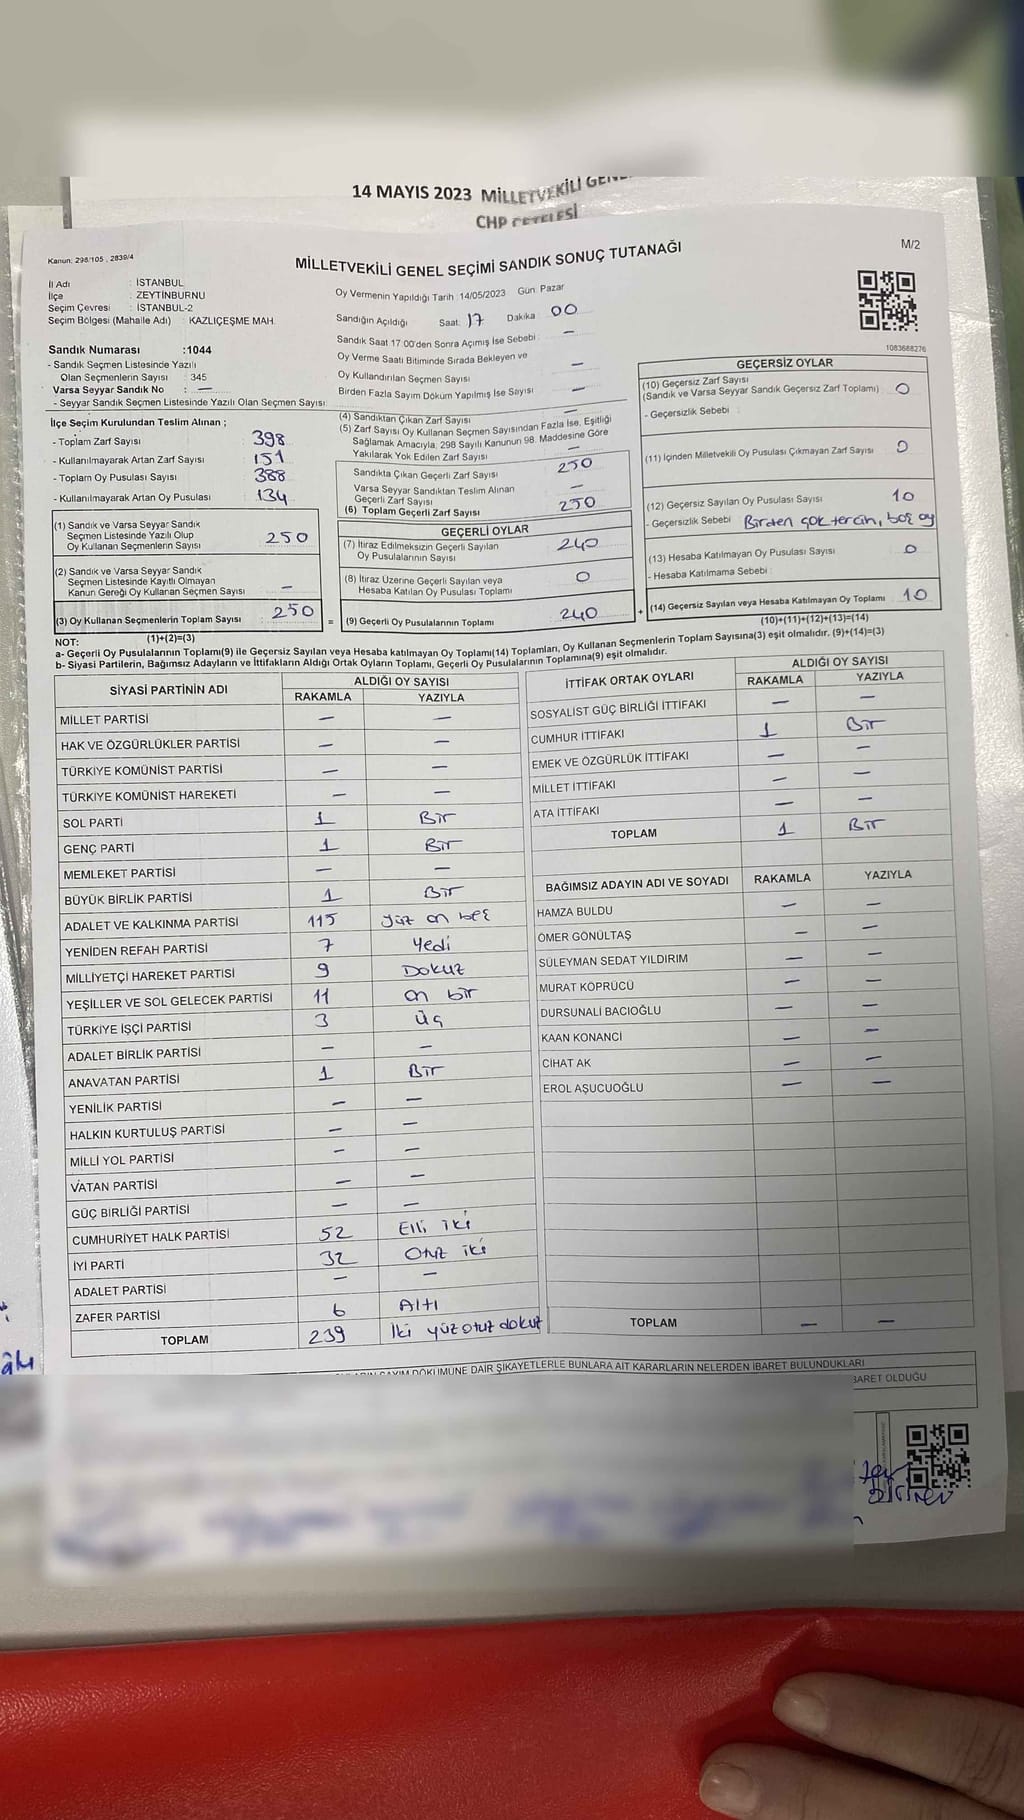 14 MAYIS 2023 MİLLETVEKİLİ
CHP ÇETELESİ
Kanun: 298/105 , 2839/4
MİLLETVEKİLİ GENEL SEÇİMİ SANDIK SONUÇ TUTANAĞI
M/2
İl Adı : İSTANBUL
İlçe : ZEYTİNBURNU
Seçim Çevresi : İSTANBUL-2
Seçim Bölgesi (Mahalle Adı) : KAZLIÇEŞME MAH.
Oy Vermenin Yapıldığı Tarih :14/05/2023 Gün: Pazar
Sandığın Açıldığı Saat: 17 Dakika 00
Sandık Saat 17:00'den Sonra Açımış İse Sebebi : —
Oy Verme Saati Bitiminde Sırada Bekleyen ve
Oy Kullandırılan Seçmen Sayısı —
Birden Fazla Sayım Döküm Yapılmış İse Sayısı —
1083688276
Sandık Numarası :1044
- Sandık Seçmen Listesinde Yazılı
Olan Seçmenlerin Sayısı : 345
Varsa Seyyar Sandık No : —
- Seyyar Sandık Seçmen Listesinde Yazılı Olan Seçmen Sayısı:
İlçe Seçim Kurulundan Teslim Alınan ;
- Toplam Zarf Sayısı 398
- Kullanılmayarak Artan Zarf Sayısı 151
- Toplam Oy Pusulası Sayısı 388
- Kullanılmayarak Artan Oy Pusulası 134
(1) Sandık ve Varsa Seyyar Sandık
Seçmen Listesinde Yazılı Olup
Oy Kullanan Seçmenlerin Sayısı 250
(2) Sandık ve Varsa Seyyar Sandık
Seçmen Listesinde Kayıtlı Olmayan
Kanun Gereği Oy Kullanan Seçmen Sayısı —
(3) Oy Kullanan Seçmenlerin Toplam Sayısı 250
(1)+(2)=(3)
(4) Sandıktan Çıkan Zarf Sayısı —
(5) Zarf Sayısı Oy Kullanan Seçmen Sayısından Fazla İse, Eşitliği
Sağlamak Amacıyla, 298 Sayılı Kanunun 98. Maddesine Göre
Yakılarak Yok Edilen Zarf Sayısı —
Sandıkta Çıkan Geçerli Zarf Sayısı 250
Varsa Seyyar Sandıktan Teslim Alınan
Geçerli Zarf Sayısı —
(6) Toplam Geçerli Zarf Sayısı 250
GEÇERLİ OYLAR
(7) İtiraz Edilmeksizin Geçerli Sayılan
Oy Pusulalarının Sayısı 240
(8) İtiraz Üzerine Geçerli Sayılan veya
Hesaba Katılan Oy Pusulası Toplamı 0
= (9) Geçerli Oy Pusulalarının Toplamı 240
GEÇERSİZ OYLAR
(10) Geçersiz Zarf Sayısı
(Sandık ve Varsa Seyyar Sandık Geçersiz Zarf Toplamı) 0
- Geçersizlik Sebebi :
(11) İçinden Milletvekili Oy Pusulası Çıkmayan Zarf Sayısı 0
(12) Geçersiz Sayılan Oy Pusulası Sayısı 10
- Geçersizlik Sebebi : Birden çok tercih, boş oy
(13) Hesaba Katılmayan Oy Pusulası Sayısı 0
- Hesaba Katılmama Sebebi :
+ (14) Geçersiz Sayılan veya Hesaba Katılmayan Oy Toplamı 10
(10)+(11)+(12)+(13)=(14)
NOT:
a- Geçerli Oy Pusulalarının Toplamı(9) ile Geçersiz Sayılan veya Hesaba katılmayan Oy Toplamı(14) Toplamları, Oy Kullanan Seçmenlerin Toplam Sayısına(3) eşit olmalıdır. (9)+(14)=(3)
b- Siyasi Partilerin, Bağımsız Adayların ve İttifakların Aldığı Ortak Oyların Toplamı, Geçerli Oy Pusulalarının Toplamına(9) eşit olmalıdır.
SİYASİ PARTİNİN ADI ALDIĞI OY SAYISI
RAKAMLA YAZIYLA
MİLLET PARTİSİ — —
HAK VE ÖZGÜRLÜKLER PARTİSİ — —
TÜRKİYE KOMÜNİST PARTİSİ — —
TÜRKİYE KOMÜNİST HAREKETİ — —
SOL PARTİ 1 Bir
GENÇ PARTİ 1 Bir
MEMLEKET PARTİSİ — —
BÜYÜK BİRLİK PARTİSİ 1 Bir
ADALET VE KALKINMA PARTİSİ 115 yüz on beş
YENİDEN REFAH PARTİSİ 7 Yedi
MİLLİYETÇİ HAREKET PARTİSİ 9 Dokuz
YEŞİLLER VE SOL GELECEK PARTİSİ 11 on bir
TÜRKİYE İŞÇİ PARTİSİ 3 Üç
ADALET BİRLİK PARTİSİ — —
ANAVATAN PARTİSİ 1 Bir
YENİLİK PARTİSİ — —
HALKIN KURTULUŞ PARTİSİ — —
MİLLİ YOL PARTİSİ — —
VATAN PARTİSİ — —
GÜÇ BİRLİĞİ PARTİSİ — —
CUMHURİYET HALK PARTİSİ 52 Elli iki
İYİ PARTİ 32 Otuz iki
ADALET PARTİSİ — —
ZAFER PARTİSİ 6 Altı
TOPLAM 239 İki yüz otuz dokuz
İTTİFAK ORTAK OYLARI ALDIĞI OY SAYISI
RAKAMLA YAZIYLA
SOSYALİST GÜÇ BİRLİĞİ İTTİFAKI — —
CUMHUR İTTİFAKI 1 Bir
EMEK VE ÖZGÜRLÜK İTTİFAKI — —
MİLLET İTTİFAKI — —
ATA İTTİFAKI — —
TOPLAM 1 Bir
BAĞIMSIZ ADAYIN ADI VE SOYADI RAKAMLA YAZIYLA
HAMZA BULDU — —
ÖMER GÖNÜLTAŞ — —
SÜLEYMAN SEDAT YILDIRIM — —
MURAT KÖPRÜCÜ — —
DURSUNALİ BACIOĞLU — —
KAAN KONANCİ — —
CİHAT AK — —
EROL AŞUCUOĞLU — —
TOPLAM — —
DÖKÜMÜNE DAİR ŞİKAYETLERLE BUNLARA AİT KARARLARIN NELERDEN İBARET BULUNDUKLARI
BARET OLDUĞU